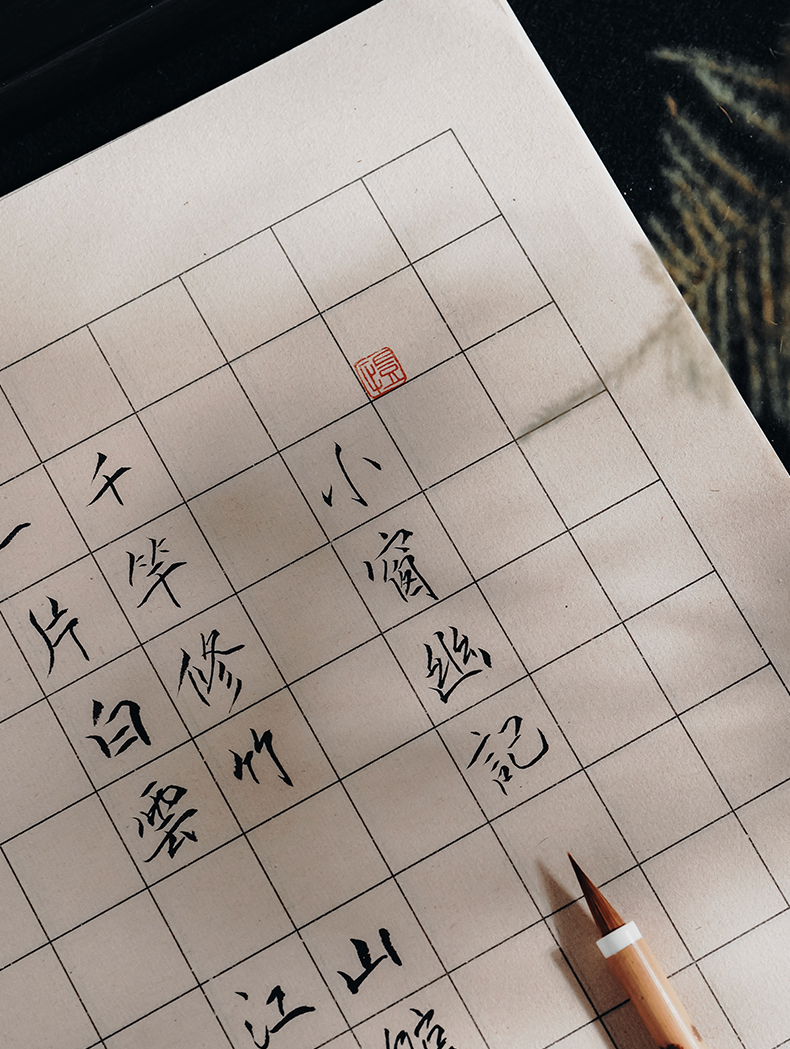 小窗幽記
千竿修竹 山
一片白雲 江